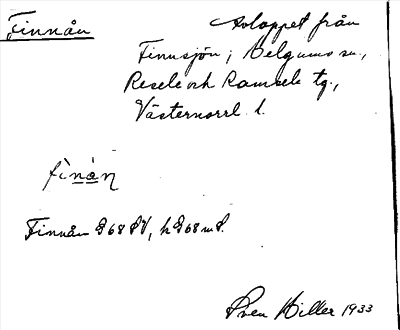 Finnån
Avloppet från
Finnsjön; Helgums sn.,
Resele och Ramsele tg.,
Västernorrl. l.
fìnàn
Finnån G68 SV, h G68 m S.
Sven Hiller 1933